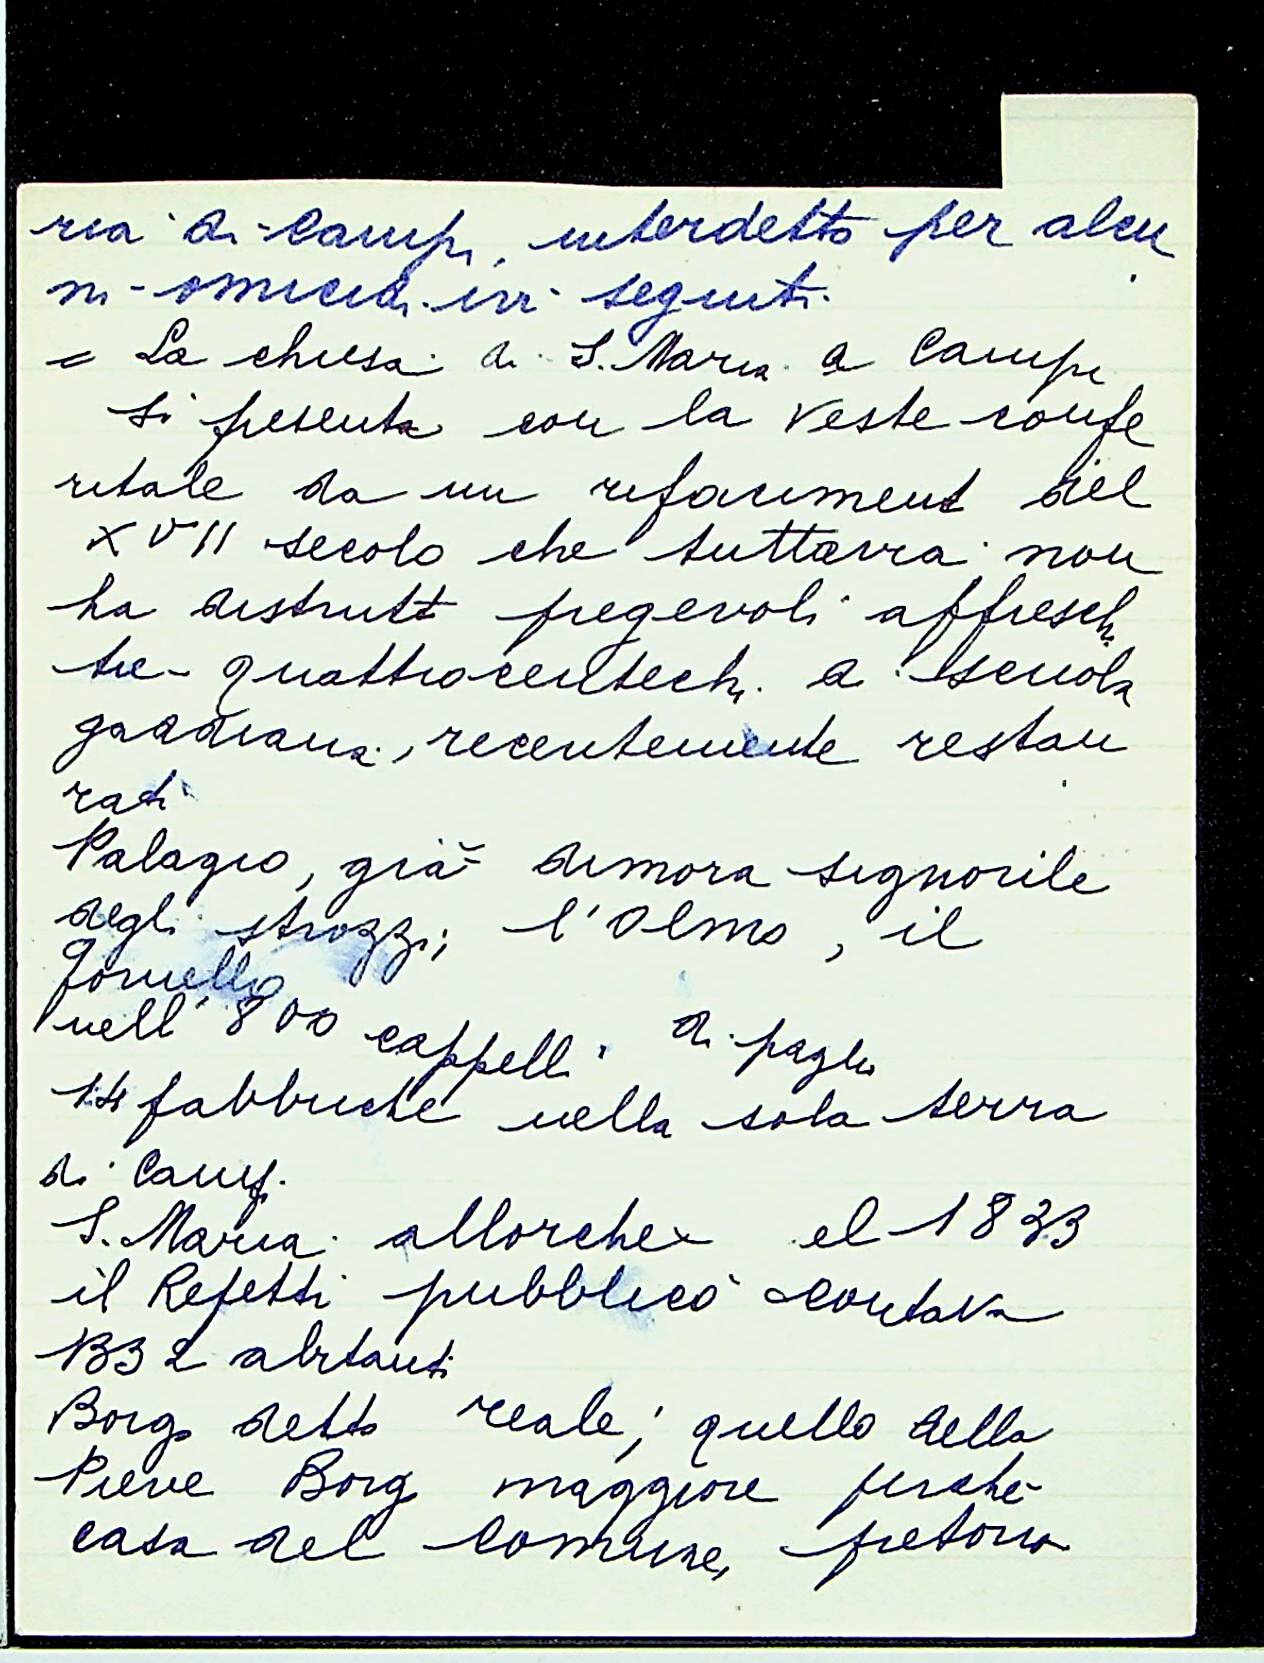 ria di Campi, interdetto per alcu
ni omicidi ivi seguiti.
= La chiesa di S. Maria a Campi
si presenta con la veste confe
ritale da un rifacimento del
XVII secolo che tuttavia non
ha distrutto pregevoli affreschi
tre-quattrocenteschi di scuola
gaddiana, recentemente restau
rati
Palagio, già dimora signorile
degli Strozzi; l'Olmo, il
Gorinello
nell'800 cappelli di paglia
14 fabbriche nella sola terra
di Campi.
S. Maria allorché el 1833
il Repetti pubblicò contava
1332 abitanti
Borgo detto reale; quello della
Pieve Borgo maggiore perché
casa del Comune, pretorio